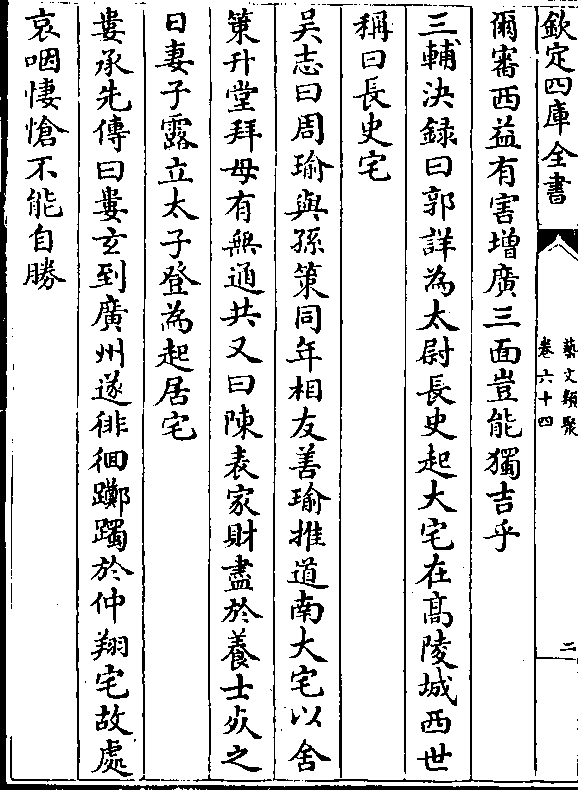 欽定四庫全書
藝文類聚
卷六十四
二
爾審西益有害增廣三面豈能獨吉乎
三輔決録曰郭詳為太尉長史起大宅在髙陵城西世
稱曰長史宅
吴志曰周瑜與孫策同年相友善瑜推道南大宅以舍
策升堂拜母有無通共又曰陳表家財盡於養士死之
日妻子露立太子登為起居宅
婁承先傳曰婁玄到廣州遂徘徊躑躅於仲翔宅故處
哀咽悽愴不能自勝